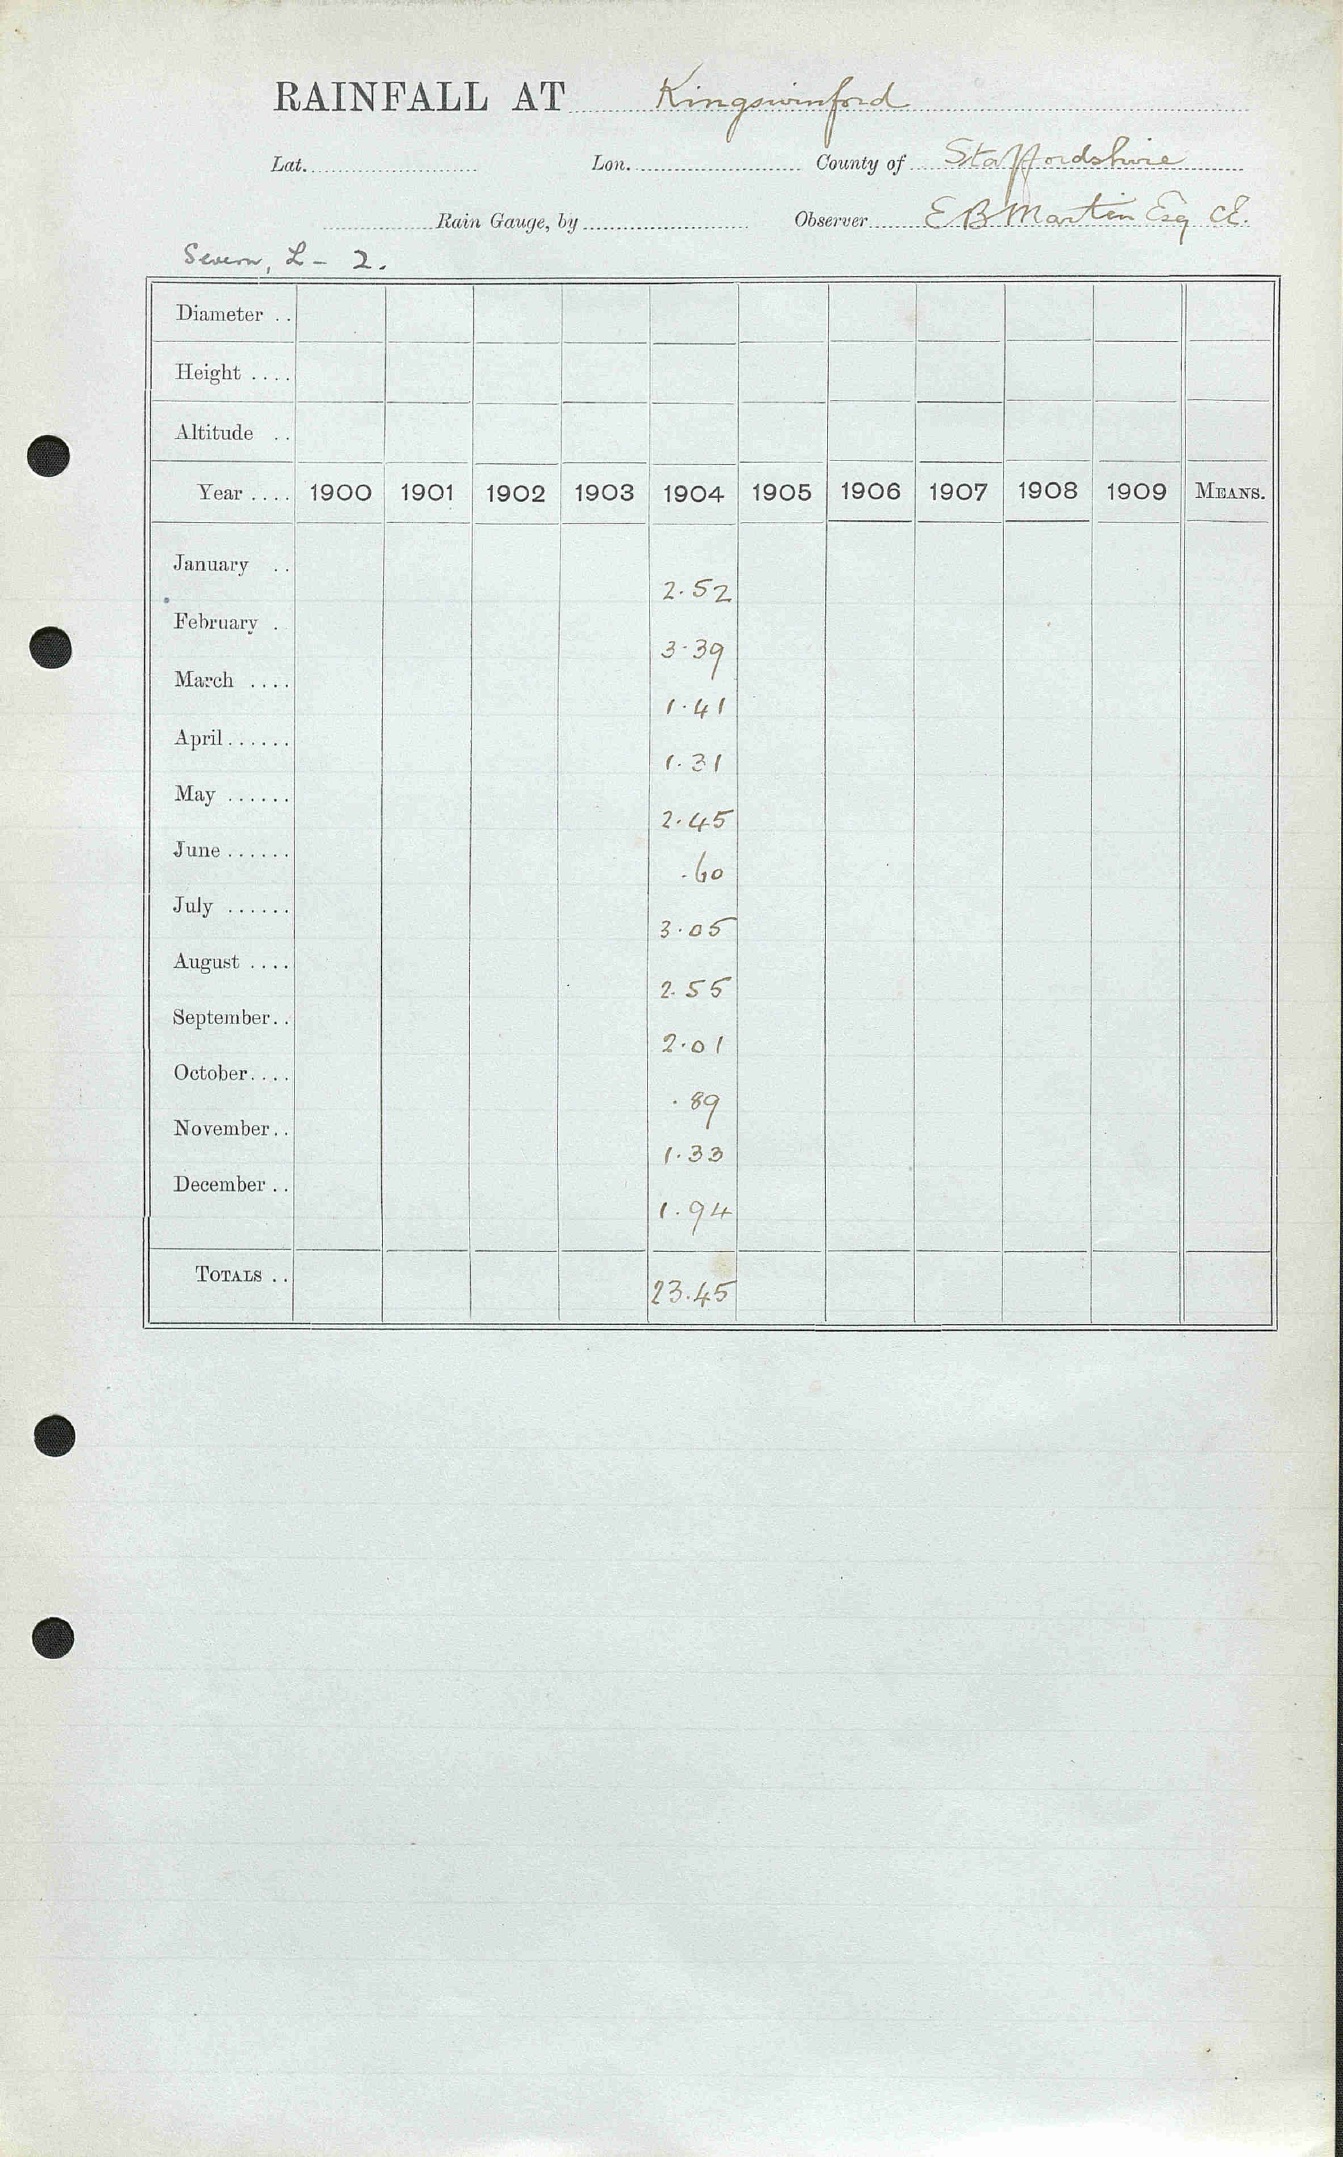 RAINFALL AT Kingswinford
Lat. Lon. County of Staffordshire
Rain Gauge, by Observer E B Martin Esq CE.
Severn, L - 2.
Diameter ..
Height ....
Altitude ..
Year .... 1900 1901 1902 1903 1904 1905 1906 1907 1908 1909 MEANS.
January ..
2.52
February .
3.39
March ....
1.41
April ......
1.31
May ......
2.45
June ......
.60
July ......
3.05
August ....
2.55
September ..
2.01
October ....
.89
November ..
1.33
December ..
1.94
TOTALS ..
23.45